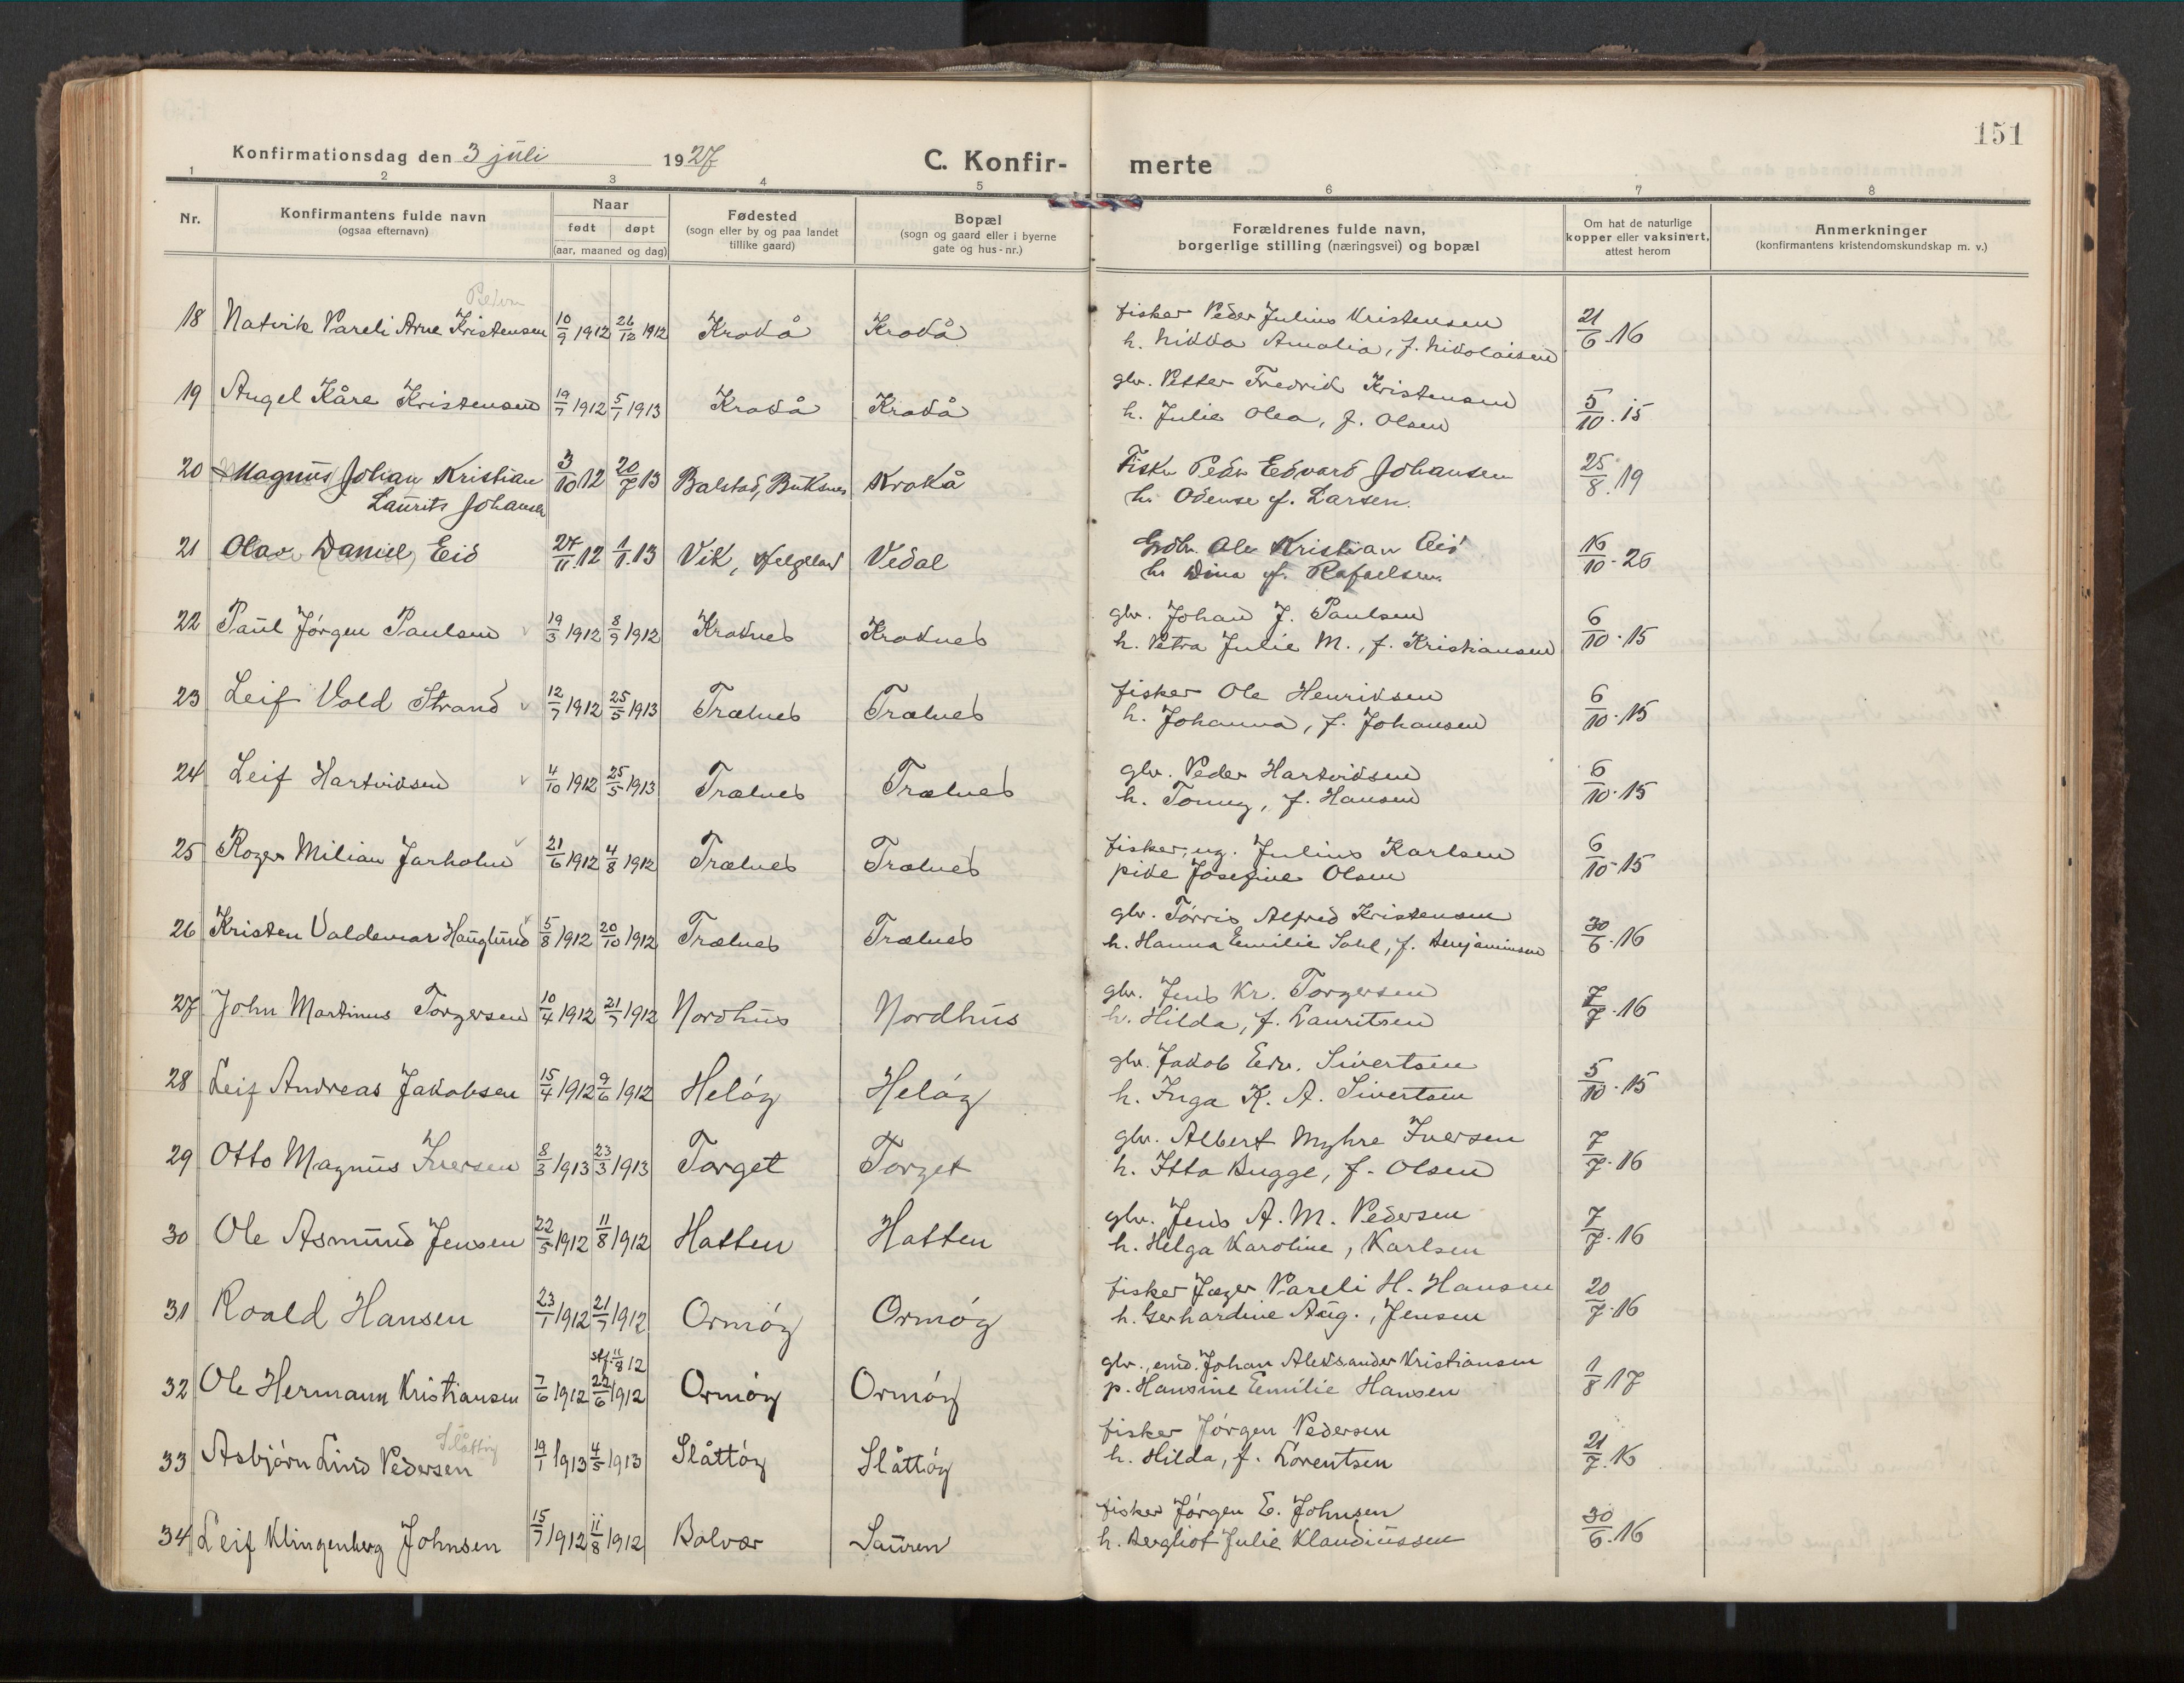 151
Konfirmationsdag den 3 juli 1927 C. Konfir- merte
1 2 3 4 5 6 7 8
Nr.
Konfirmantens fulde navn
(ogsaa efternavn)
Naar
født døpt
(aar, maaned og dag)
Fødested
(sogn eller by og paa landet
tillike gaard)
Bopæl
(sogn og gaard eller i byerne
gate og hus-nr.)
Forældrenes fulde navn,
borgerlige stilling (næringsvei) og bopæl
Om hat de naturlige
kopper eller vaksinert,
attest herom
Anmerkninger
(konfirmantens kristendomskundskap m. v.)
18 Natvik Pareli Arne Kristensen 10/9 1912 26/12 1912 Krokå Krokå fisker Peder Julius Kristensen 21/6. 16
h. Nikka Amalia, f. Nikolaisen
19 Angel Kåre Kristensen 19/7 1912 5/1 1913 Krokå Krokå glv. Petter Fredrik Kristensen 5/10. 15
h. Julie Olea, f. Olsen
20 Magnus Johan Kristian 3/10 12 20/7 13 Balstad, Buksnes Krokå Fisker Peder Edvard Johansen 25/8. 19
Laurits Johansen h. Odense f. Larsen.
21 Olav Daniel Eid 27/11. 12 1/1. 13 Vik, Helgeland Vedal Gdbr. Ole Kristian Eid 16/10. 26
h. Dina f. Rafaelsen.
22 Paul Jørgen Paulsen 19/3 1912 8/9 1912 Kroknes Kroknes glv. Johan J. Paulsen 6/10. 15
h. Petra Julie M., f. Kristiansen
23 Leif Vold Strand 12/7 1912 25/5 1913 Trælnes Trælnes fisker Ole Henriksen 6/10. 15
h. Johanna, f. Johansen
24 Leif Hartviksen 4/10 1912 25/5 1913 Trælnes Trælnes glv. Peder Hartviksen 6/10. 15
h. Tonny, f. Hansen
25 Roger Milian Jarholm 21/6 1912 4/8 1912 Trælnes Trælnes fisker, ug. Julius Karlsen 6/10. 15
pike Josefine Olsen
26 Kristen Valdemar Hauglund 5/8 1912 20/10 1912 Trælnes Trælnes glv. Tørris Alfred Kristensen 30/6. 16
h. Hanna Emilie Sahl, f. Benjaminsen
27 John Martinus Torgersen 10/4 1912 21/7 1912 Nordhus Nordhus glv. Jens Kr. Torgersen 7/7. 16
h. Hilda, f. Lauritsen
28 Leif Andreas Jakobsen 15/4 1912 9/6 1912 Heløy Heløy glv. Jakob Edv. Sivertsen 5/10. 15
h. Inga K. A. Sivertsen
29 Otto Magnus Iversen 8/3 1913 23/3 1913 Torget Torget glv. Albert Myhre Iversen 7/7. 16
h. Itta Bugge, f. Olsen
30 Ole Asmund Jensen 22/5 1912 11/8 1912 Hatten Hatten glv. Jens A. M. Pedersen 7/7. 16
h. Helga Karoline, Karlsen
31 Roald Hansen 23/1 1912 21/7 1912 Ormøy Ormøy fisker Jæger Pareli H. Hansen 20/7. 16
h. Gerhardine Aug., Jensen
stf. 11/8 12
32 Ole Hermann Kristiansen 7/6 1912 22/6 1912 Ormøy Ormøy glv., enid. Johan Aleksander Kristiansen 1/8 17
p. Hansine Emilie Hansen
Slåttøy
33 Asbjørn Lind Pedersen 19/1 1913 4/5 1913 Slåttøy Slåttøy fisker Jørgen Pedersen 21/7. 16
h. Hilda, f. Lorentsen
34 Leif Klingenberg Johnsen 15/7 1912 11/8 1912 Bolvær Sauren fisker Jørgen E. Johnsen 30/6. 16
h. Bergliot Julie Klaudiussen